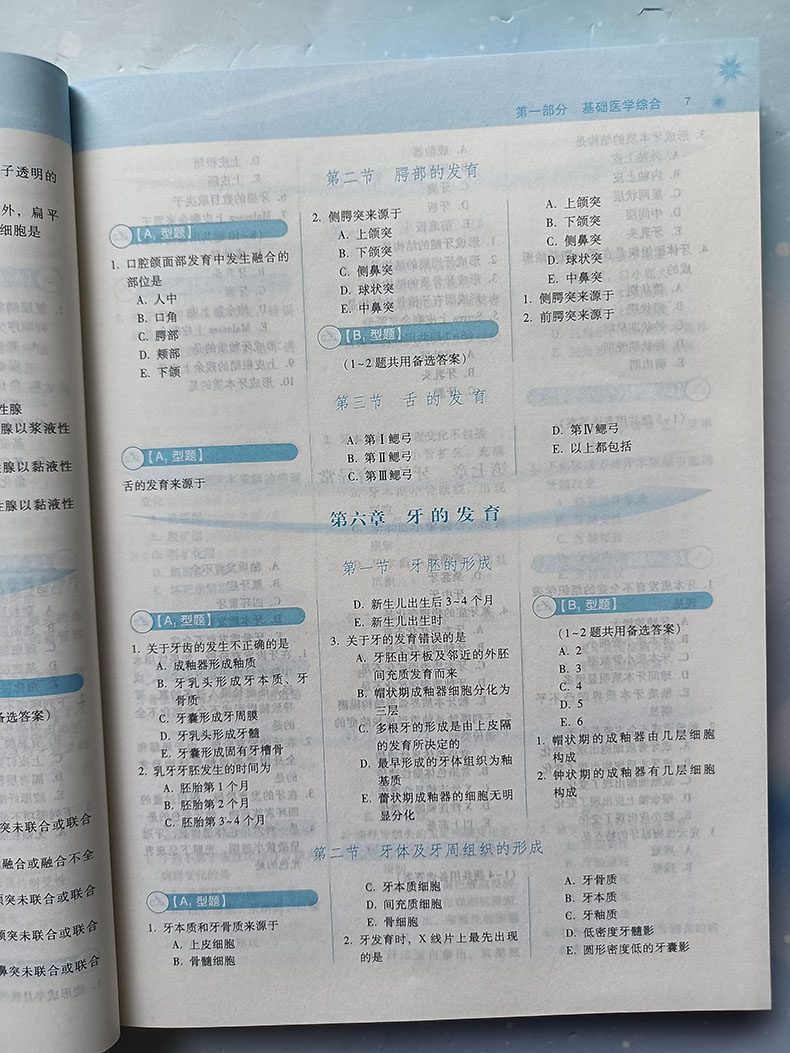 子透明的
外，扁平
细胞是
性腺
腺以浆液性
腺以黏液性
性腺以黏液性
备选答案）
突未联合或联合
融合或融合不全
颌突未联合或联合
颌突未联合或联合
鼻突未联合或联合
第一部分 基础医学综合 7
第二节 腭部的发育
【A₁型题】
1. 口腔颌面部发育中发生融合的
部位是
A. 人中
B. 口角
C. 腭部
D. 颊部
E. 下颌
2. 侧腭突来源于
A. 上颌突
B. 下颌突
C. 侧鼻突
D. 球状突
E. 中鼻突
【B₁型题】
（1~2题共用备选答案）
A. 上颌突
B. 下颌突
C. 侧鼻突
D. 球状突
E. 中鼻突
1. 侧腭突来源于
2. 前腭突来源于
第三节 舌的发育
【A₁型题】
舌的发育来源于
A. 第Ⅰ鳃弓
B. 第Ⅱ鳃弓
C. 第Ⅲ鳃弓
D. 第Ⅳ鳃弓
E. 以上都包括
第六章 牙的发育
第一节 牙胚的形成
【A₁型题】
1. 关于牙齿的发生不正确的是
A. 成釉器形成釉质
B. 牙乳头形成牙本质、牙
骨质
C. 牙囊形成牙周膜
D. 牙乳头形成牙髓
E. 牙囊形成固有牙槽骨
2. 乳牙牙胚发生的时间为
A. 胚胎第1个月
B. 胚胎第2个月
C. 胚胎第3~4个月
D. 新生儿出生后3~4个月
E. 新生儿出生时
3. 关于牙的发育错误的是
A. 牙胚由牙板及邻近的外胚
间充质发育而来
B. 帽状期成釉器细胞分化为
三层
C. 多根牙的形成是由上皮隔
的发育所决定的
D. 最早形成的牙体组织为釉
基质
E. 蕾状期成釉器的细胞无明
显分化
【B₁型题】
（1~2题共用备选答案）
A. 2
B. 3
C. 4
D. 5
E. 6
1. 帽状期的成釉器由几层细胞
构成
2. 钟状期的成釉器有几层细胞
构成
第二节 牙体及牙周组织的形成
【A₁型题】
1. 牙本质和牙骨质来源于
A. 上皮细胞
B. 骨髓细胞
C. 牙本质细胞
D. 间充质细胞
E. 骨细胞
2. 牙发育时，X线片上最先出现
的是
A. 牙骨质
B. 牙本质
C. 牙釉质
D. 低密度牙髓影
E. 圆形密度低的牙囊影